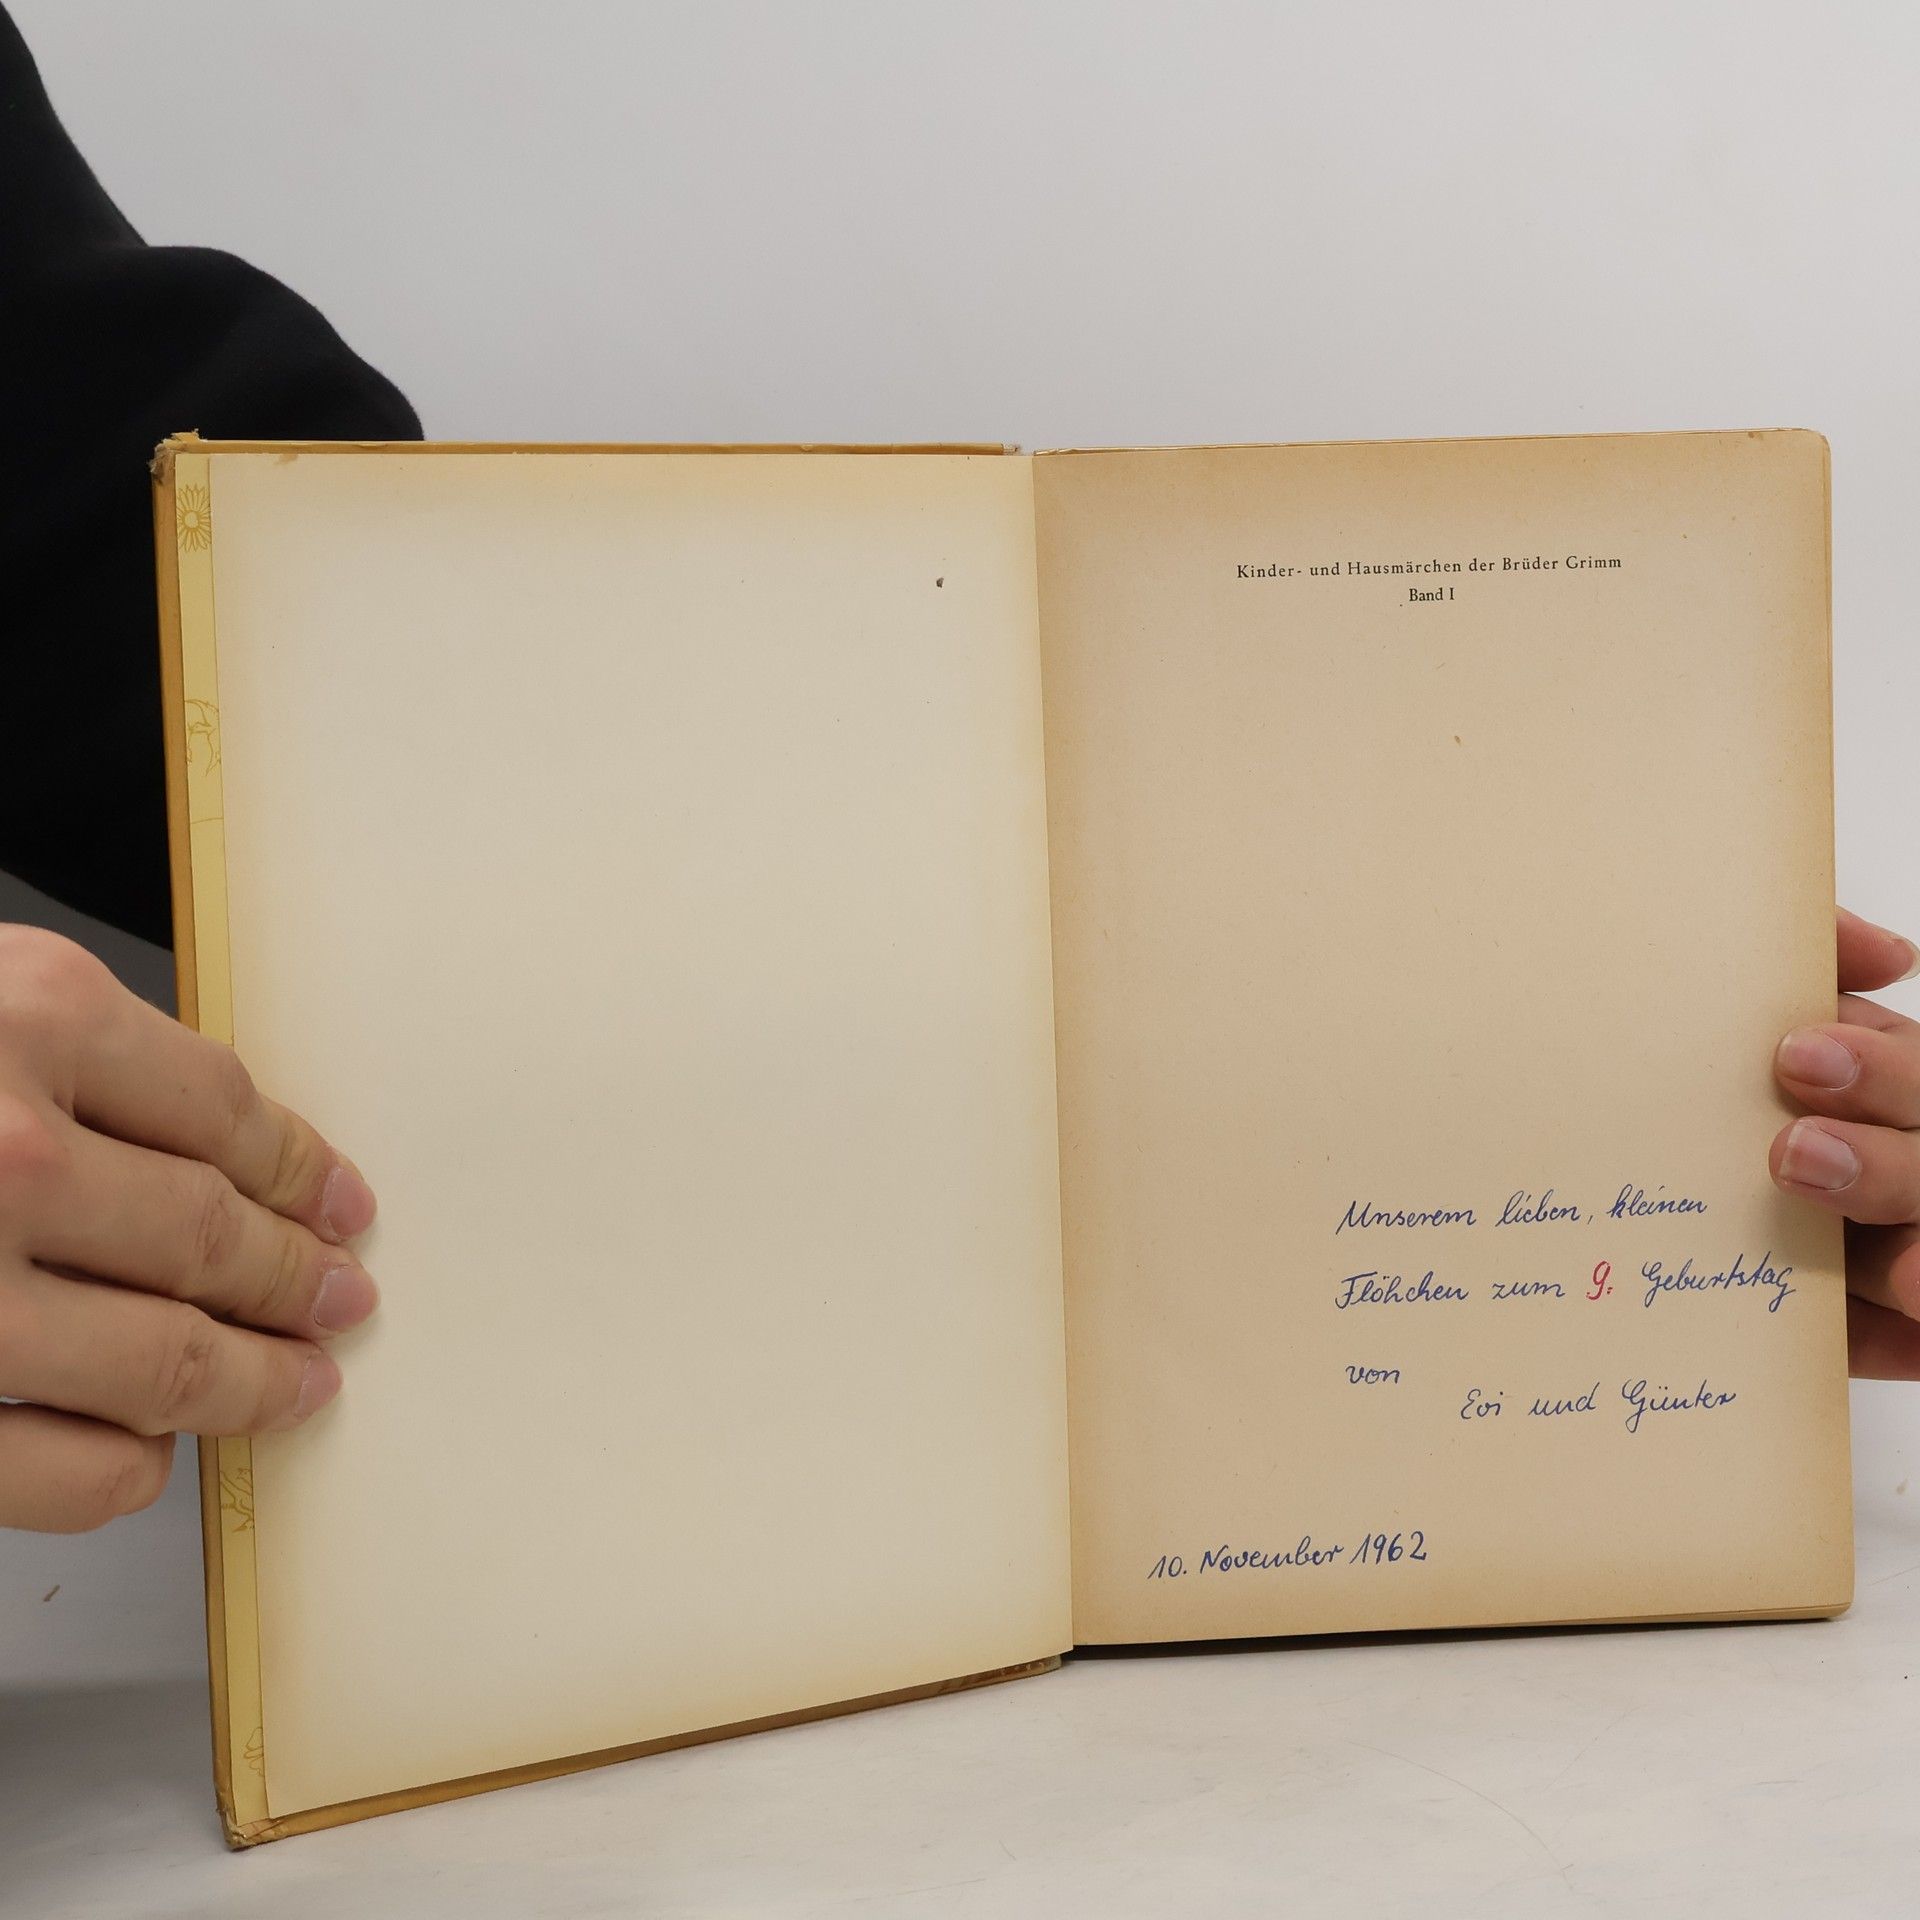 Kinder- und Hausmärchen der Brüder Grimm
Band I
Unserem lieben, kleinen
Flöhchen zum 9. Geburtstag
von
Evi und Günter
10. November 1962